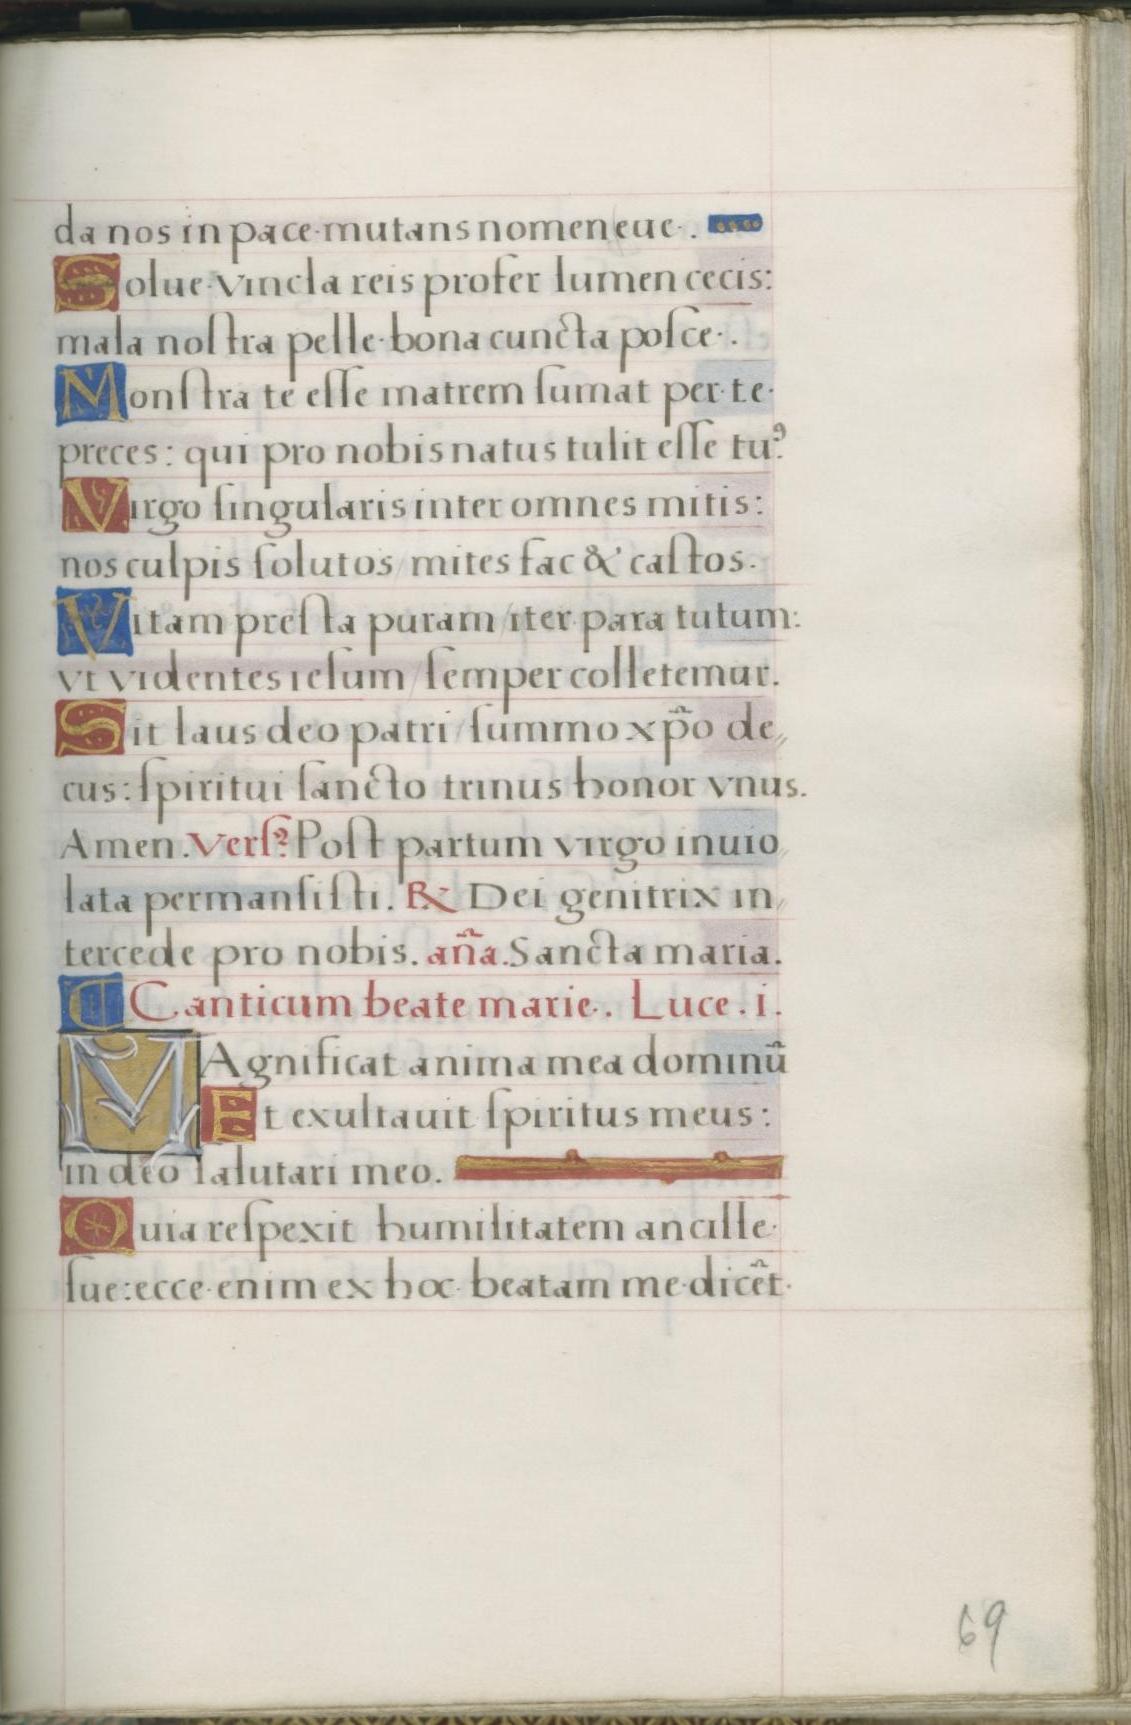 da nos in pace·mutans nomen eue·.
Solue·vincla reis profer lumen cecis:
mala noſtra pelle·bona cuncta poſce·.
Monſtra te eſſe matrem ſumat per·te·
preces: qui pro nobis natus tulit eſſe tuꝰ.
Virgo ſingularis inter omnes mitis:
nos culpis ſolutos / mites fac & caſtos.
Vitam preſta puram / iter·para tutum:
vt videntes ieſum / ſemper colletemur.
Sit laus deo patri / ſummo xp̃o de〃
cus: ſpiritui ſancto trinus honor vnus.
Amen. Verſꝰ. Poſt partum virgo inuio〃
lata permanſiſti. ℟ Dei genitrix in〃
tercede pro nobis. aña. Sancta maria.
C Canticum beate marie·. Luce. i.
MAgnificat anima mea dominũ
Et exultauit ſpiritus meus:
in deo ſalutari meo.
Quia reſpexit humilitatem ancille·
ſue: ecce·enim ex hoc·beatam me·dicẽt·
69